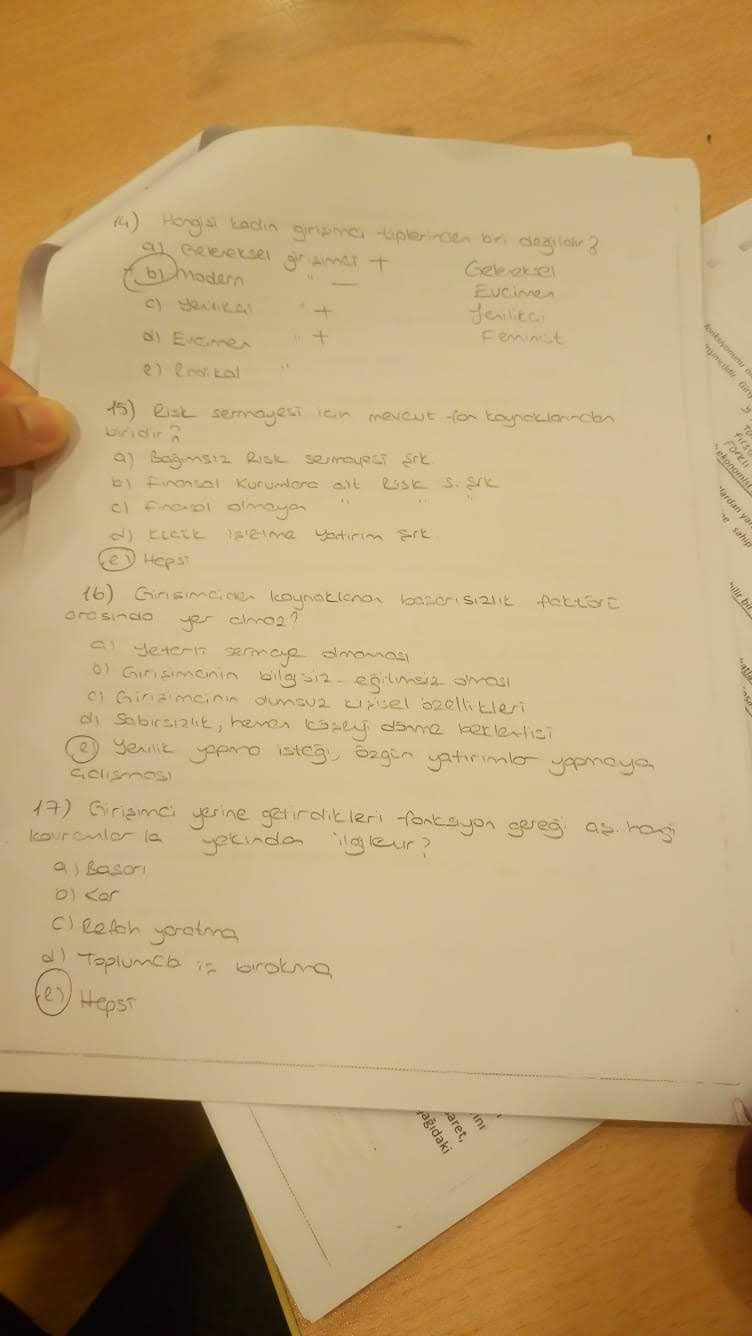 14) Hangisi kadın girişimci tiplerinden biri değildir?
a) Geleneksel girişimci + Geleneksel
b) Modern " — Evcimen
c) Yenilikçi " + Yenilikçi
d) Evcimen " + Feminist
e) Radikal "
15) Risk sermayesi için mevcut fon kaynaklarından
biridir?
a) Bağımsız Risk sermayesi şrk
b) Finansal Kurumlara ait Risk s. şrk
c) Finansal olmayan " " " "
d) Küçük işletme yatırım şrk
e) Hepsi
16) Girişimciden kaynaklanan başarısızlık faktörü
arasında yer almaz?
a) Yeterli sermaye olmaması
b) Girişimcinin bilgisiz-eğitimsiz olması
c) Girişimcinin olumsuz kişisel özellikleri
d) Sabırsızlık, hemen köşeyi dönme beklentisi
e) Yenilik yapma isteği, özgün yatırımlar yapmaya
çalışması
17) Girişimci yerine getirdikleri fonksiyon gereği aş. hangi
kavramlar la yakından ilgilidir?
a) Başarı
b) Kar
c) Refah yaratma
d) Toplumda iz bırakma
e) Hepsi
ekonomist
lardan ya
sahip
ilir bir
aret,
ağıdaki